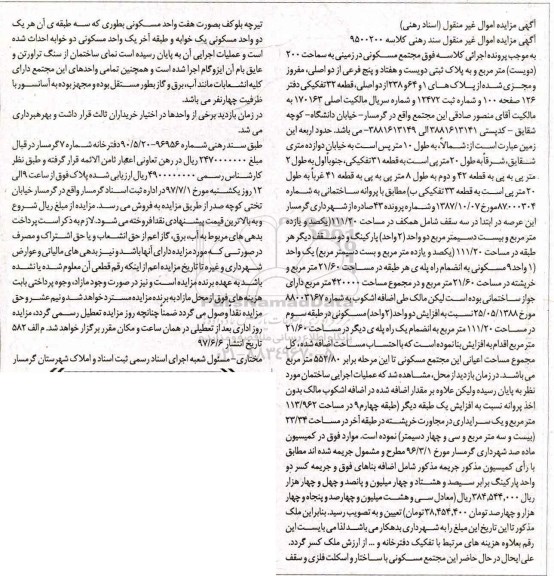 آگهی مزایده اموال غیر منقول (اسناد رهنی)
آگهی مزایده اموال غیر منقول سند رهنی کلاسه ۹۵۰۰۲۰۰
به موجب پرونده اجرائی کلاسه فوق مجتمع مسکونی در زمینی به مساحت ۲۰۰
(دویست) متر مربع و به پلاک ثبتی دویست و هفتاد و پنج فرعی از دو اصلی، مفروز
و مجزی شده از پلاک های ۱ و ۶۴ و ۲۳۸ از دو اصلی، قطعه ۳۲ تفکیکی دفتر
۱۲۶ صفحه ۱۰۰ و شماره ثبت ۱۲۴۷۲ و شماره سریال مالکیت اصلی ۱۷۰۱۶۳ به
مالکیت آقای منصور صادقی این مجتمع واقع در گرمسار- خیابان دانشگاه- کوچه
شقایق - کدپستی ۳۸۸۱۶۱۳۱۴۱ الی ۳۸۸۱۶۱۳۱۴۹- می باشد. حدود اربعه این
زمین عبارت است از: شمالاً، به طول ۱۰ متر پس است به خیابان دوازده متری
شقایق، شرقاً به طول ۲۰ متر پی است به قطعه ۳۱ تفکیکی، جنوباً اول به طول ۲
متر پی به پی به قطعه ۴۲ و دوم به طول ۸ متر پی به پی به قطعه ۴۱ غرباً به طول
۲۰ متر پی است به قطعه ۳۳ تفکیکی ب) مطابق با پروانه ساختمانی به شماره
۸۷۰۰۰۳۰۴ مورخ ۱۳۸۷/۱۰/۰۷ و شماره پرونده ۴۳ صادره از شهرداری گرمسار
این عرصه در ابتدا در سه سقف شامل همکف در مساحت ۱۱۱/۲۰ (یکصد و یازده
متر مربع و بیست دسیمتر مربع دو واحد (۲ واحد) پارکینگ و دو سقف دیگر هر
طبقه در مساحت ۱۱۱/۲۰ (یکصد و یازده متر مربع و بست دسیمتر مربع) یک واحد
(۱ واحد ۹ مسکونی به انضمام راه پله ی هر طبقه در مساحت ۲۱/۶۰ متر مربع و
خرپشته در مساحت ۲۱/۶۰ متر مربع و در مجموع مساحت ۴۲۰۰۰ متر مربع دارای
جواز ساختمانی بوده است لیکن مالک طی اضافه اشکوب به شماره ۸۸۰۰۲۱۶۷
مورخ ۲۵/۰۵/۱۳۸۸ نسبت به افزایش دو واحد (۲ واحد) مسکونی در طبقه سوم
در مساحت ۱۱۱/۲۰ متر مربع به انضمام یک راه پله ی دیگر در مساحت ۲۱/۶۰
متر مربع اقدام به افزایش بنا نموده است که با احتساب مساحت اضافه شده، کل
مجموع مساحت اعیانی این مجتمع مسکونی تا این مرحله برابر ۵۵۲/۸۰ متر مربع
می باشد. در زمان بازدید از محل، مشاهده شد که عملیات اجرایی ساختمان مورد
نظر به پایان رسیده ولیکن علاوه بر مقدار اضافه شده در اضافه اشکوب مالک بدون
اخذ پروانه نسبت به افزایش یک طبقه دیگر (طبقه چهارم ۹ در مساحت ۱۱۳/۹۶۲
متر مربع و یک سرایداری در مجاورت خرپشته در طبقه آخر در مساحت ۲۳/۳۴
(بیست و سه متر مربع و سی و چهار دسیمتر) نموده است. موارد فوق در کمیسیون
ماده صد شهرداری گرمسار مورخ ۹۶/۳/۱ مطرح و مشمول جریمه شده اند مطابق
با رأی کمیسیون مذکور جریمه مذکور شامل اضافه بناهای فوق و جریمه کسر دو
واحد پارکینگ برابر سیصد و هشتاد و چهار میلیون و پانصد و چهل و چهار هزار
ریال ۳۸۴,۵۴۴,۰۰۰ ریال (معادل سی و هشت میلیون و چهارصد و پنجاه و چهار
هزار و چهارصد تومان ۳۸,۴۵۴,۴۰۰ تومان) تعیین و به تصویب رسید. بنابراین ملک
مذکور تا این تاریخ این مبلغ را به شهرداری بدهکار می باشد لذا می بایست این
رقم بعلاوه هزینه های مرتبط با تفکیک دفترخانه و ... از ارزش ملک کسر گردد.
علی ایحال در حال حاضر این مجتمع مسکونی با ساختار و اسکلت فلزی و سقف
تیرچه بلوکف بصورت هفت واحد مسکونی بطوری که سه طبقه ی آن هر یک
دو واحد مسکونی یک خوابه و طبقه آخر یک واحد مسکونی دو خوابه احداث شده
است و عملیات اجرایی آن به پایان رسیده است نمای ساختمان از سنگ تراورتن و
عایق بام آن ایزوگام اجرا شده است و همچنین تمامی واحدهای این مجتمع دارای
کلیه انشعابات مانند آب، برق و گاز بطور مستقل بوده و مجهز بوده به آسانسور با
ظرفیت چهار نفر می باشد.
در زمان بازدید برخی از واحدها در اختیار خریداران ثالث قرار داشت و بهرهبرداری
می شد.
طبق سند رهنی شماره ۹۶۹۵۶-۹۰/۵/۲۰ دفترخانه شماره ۷ گرمسار در قبال
مبلغ ۲۴۷۰۰۰۰۰۰۰ ریال در رهن تعاونی اعتبار ثامن الائمه قرار گرفته و طبق نظر
کارشناس رسمی ۴۹۰۰۰۰۰۰۰۰ ریال ارزیابی شده پلاک فوق از ساعت ۹ الی
۱۲ روز یکشنبه مورخ ۹۷/۷/۱ در اداره ثبت اسناد گرمسار واقع در گرمسار خیابان
تختی کوچه صدر از طریق مزایده به فروش می رسد. مزایده از مبلغ ریال شروع
و به بالاترین قیمت پیشنهادی نقدا فروخته می شود. لازم به ذکر است پرداخت
بدهی های مربوط به آب، برق، گاز اعم از حق انشعاب و یا حق اشتراک و مصرف
در صورتی که مورد مزایده دارای آنها باشد و نیز بدهی های مالیاتی و عوارض
شهرداری و غیره تا تاریخ مزایده اعم از اینکه رقم قطعی آن معلوم شده یا نشده
باشد به عهده برنده مزایده است و نیز در صورت وجود مازاد، وجوه پرداختی بابت
هزینه های فوق از محل مازاد به برنده مزایده مسترد خواهد شد و نیم عشر و حق
مزایده نقدا وصول می گردد ضمناً چنانچه روز مزایده تعطیل رسمی گردد، مزایده
روز اداری بعد از تعطیلی در همان ساعت و مکان مقرر برگزار خواهد شد. م الف ۵۸۲
تاریخ انتشار ۹۷/۶/۶
مختاری- مسئول شعبه اجرای اسناد رسمی ثبت اسناد و املاک شهرستان گرمسار